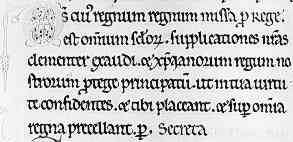 DS cuiꝰ regnum regnum missa ꝓ Rege.
est omnium sclor. supplicationes nras
clementer exaudi. & xpianorum regum no
strorum ꝓtege principatum. ut in tua uirtu
te confidentes. & tibi placeant. & sup omia
regna precellant. p. Secreta